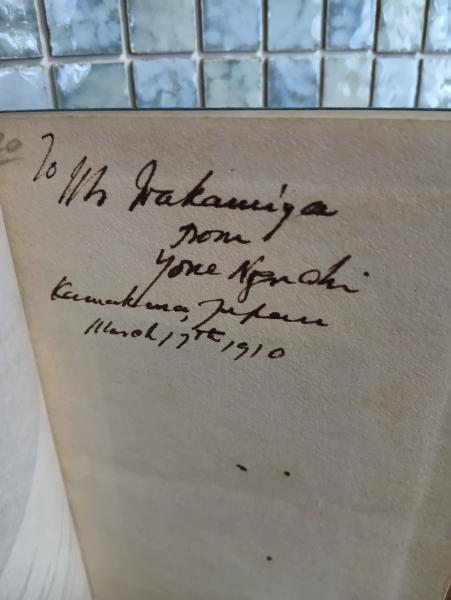 To Mr Wakamiya
from
Yone Noguchi
Kamakura, Japan
March 17th, 1910